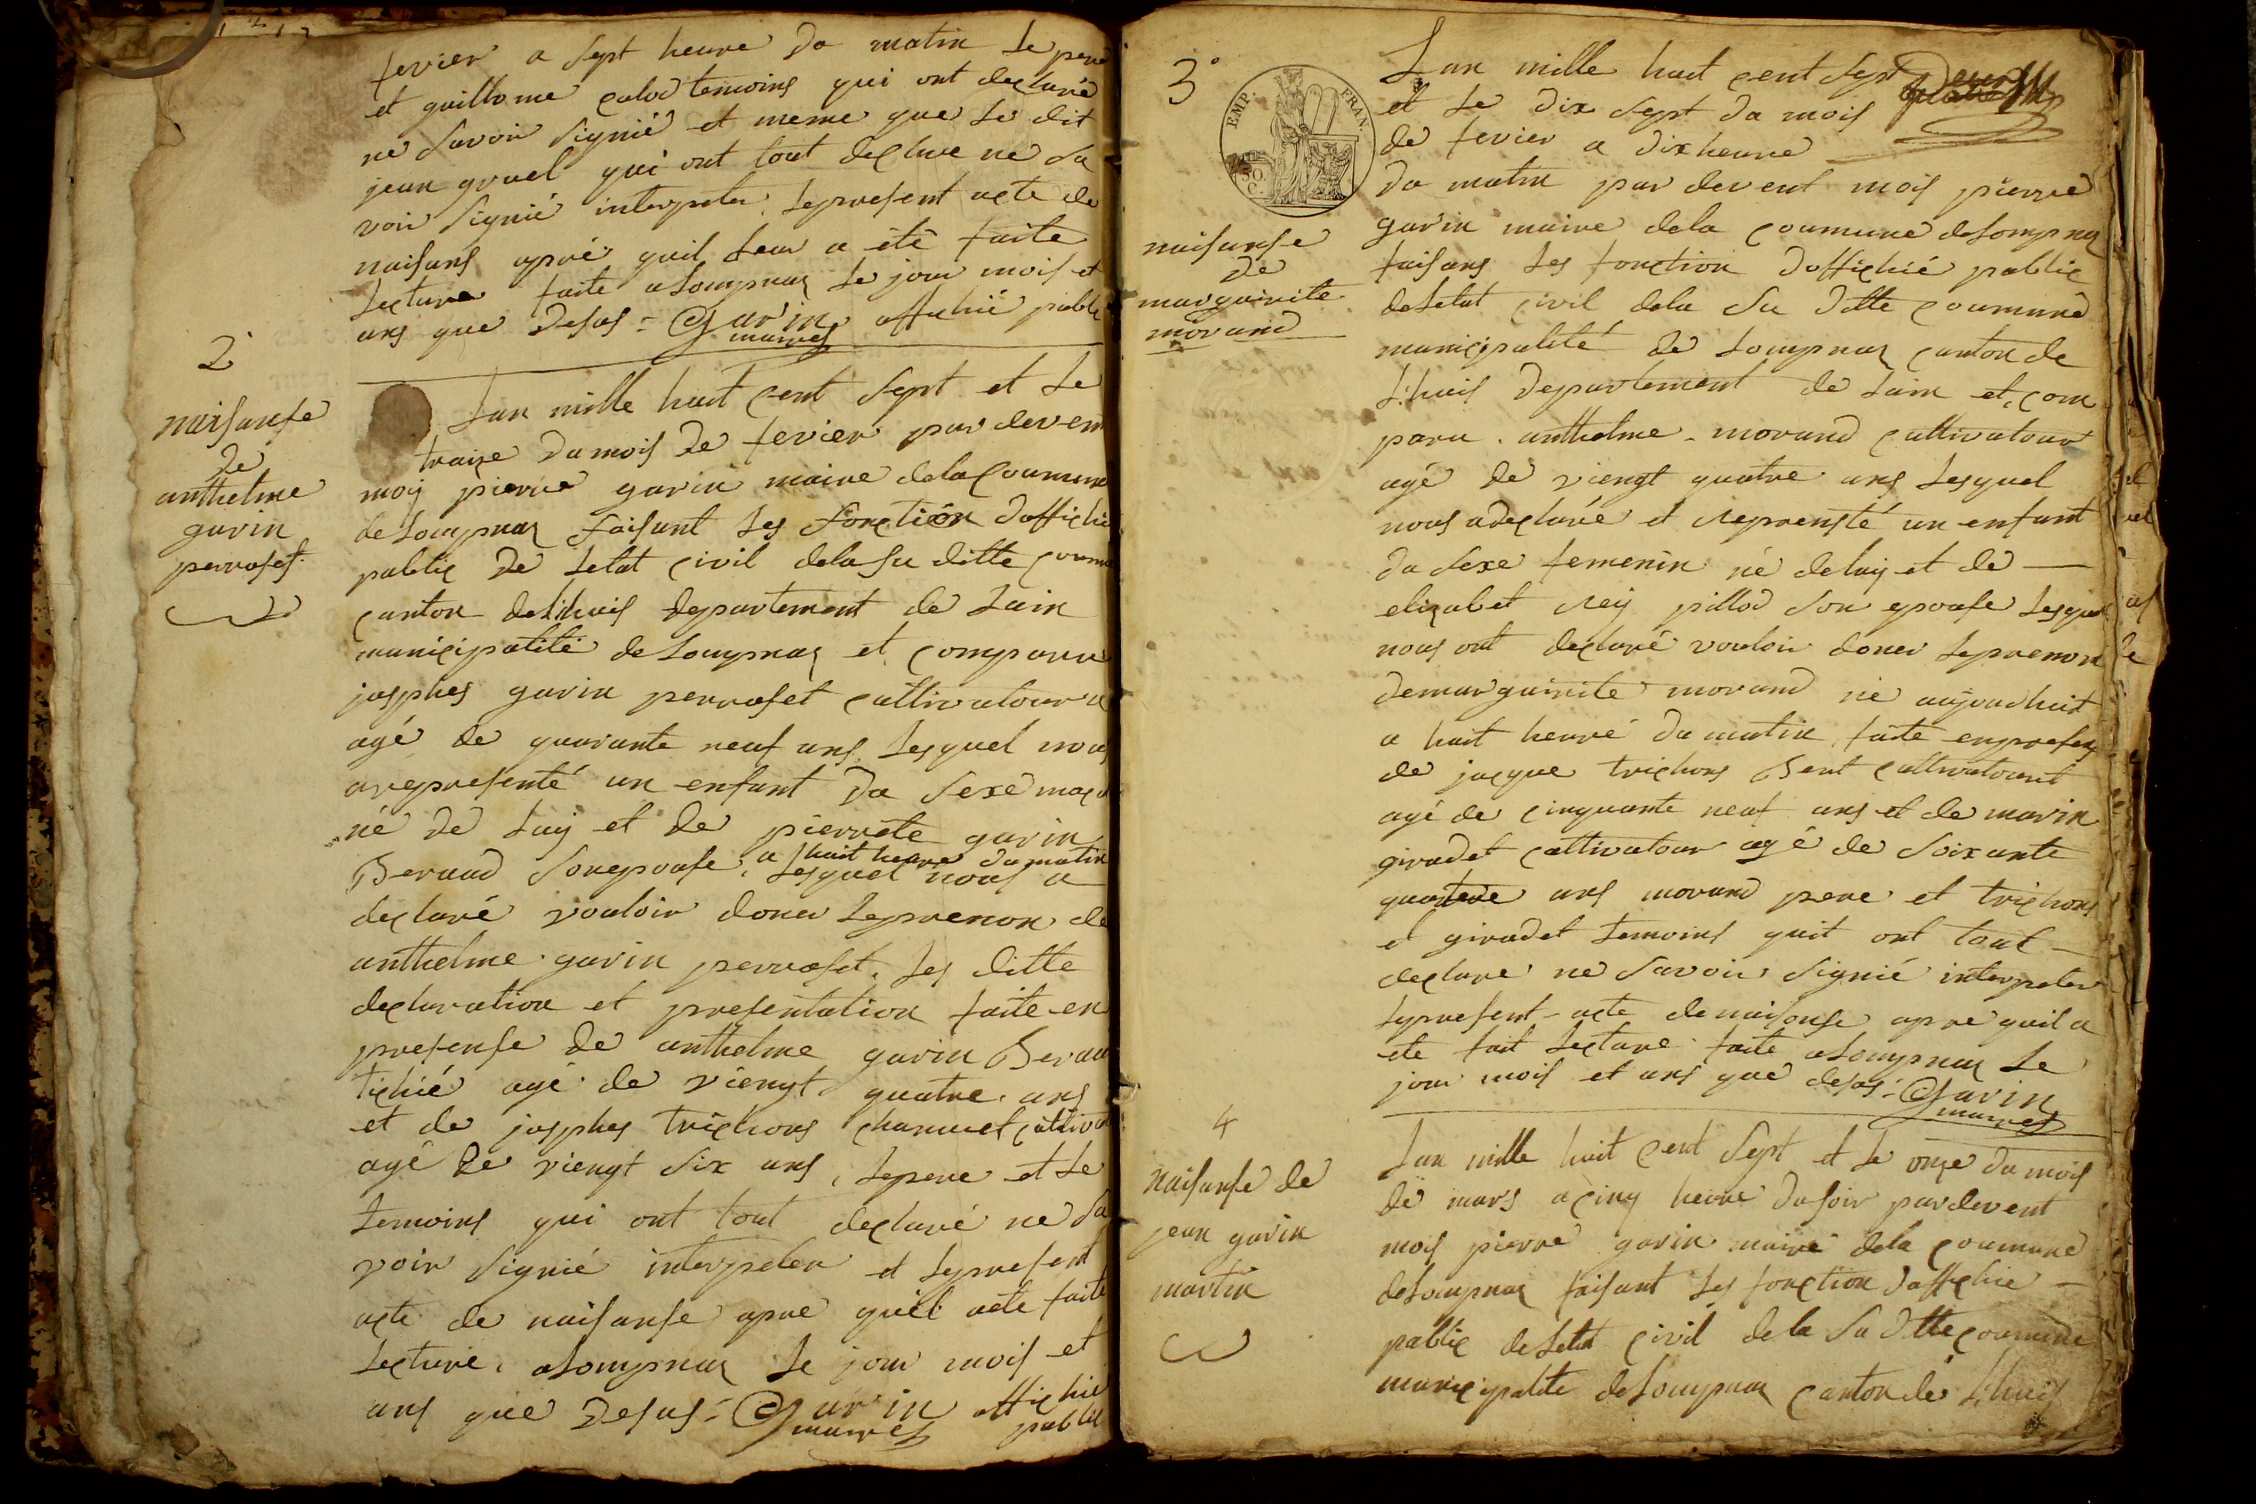 fevier a sept heure du matin le pere
et guillome calod temoins qui ont declaré
ne savoir signié et meme que le dit
jean gruel qui ont tout declare ne sa
voir signié interpeler le present acte de
naisans apré quil leur a été faite
lecture faite a lompnaz le jour mois et
ans que desus = Garin maires offichié public
2
naisanse
de
anthelme
garin
perroset
Lan mille huit cent sept et le
traize du mois de fevier par devent
moy pierre garin maire dela coumune
de lompnaz faisant les fonction doffichié
public de letat civil dela su ditte coumune
canton de lhuis departement de lain
municipalité de lompnaz et comparu
josphes garin perroset cultivatour
agé de quarante neuf ans lesquel nous
a representé un enfant du sexe
né de luy et de pierrete garin
a huit heure du matin
Beraud son epouse, lesquel nous a
declaré vouloir doner le prenon de
anthelme garin perroset. les ditte
declaration et presentation faite en
presense de anthelme garin Beraud
agé de viengt quatre ans
et de josphes trichons chanuet
agé de viengt six ans, le pere et le
temoins qui ont tout declaré ne sa
voir signié interpeler et le present
acte de naisanse apre quil acte faite
lecture, a lompnaz le jour mois et
ans que desus = Garin maires offichié public
3°
EMP. FRAN.
50
C.
naisanse
de
marguirite
morand
Lan mille huit cent sept
et le dix sept du mois
de fevier a dix heure
du matin par devent mois pierre
garin maire dela coumune de lompnaz
faisans les fonction doffichié public
de letat civil dela su ditte coumune
municipalité de lompnaz canton de
lhuis departement de lain et com
paru anthelme morand cultivatour
agé de viengt quatre ans lesquel
nous a declarée et reprensté un enfant
du sexe femenin né de luy et de
elizabet rey pillod son epouse lesquel
nous ont declaré vouloir doner le prenon
de marguirite morand né aujourdhuit
a huit heure du matin faite en presens
de jacque trichons Bent cultivatourt
agé de cinquante neuf ans et de marin
giradet cultivatour agé de soixante
quatere ans morand pere et trichons
et giradet temoins quit ont tout
declare ne savoir signié interpeler
le present acte de naisanse apre quil a
ete fait lecture faite a lompnaz le
jour mois et ans que desus = Garin
maires
4
naisanse de
jean garin
martin
Lan mille huit cent sept et le onze du mois
de mars a cinq heure du soir par devent
mois pierre garin maire dela coumune
de lompnaz faisant les fonction doffichie
public de letat civil de la su ditte coumune
municipalite de lompnaz canton de lhuis